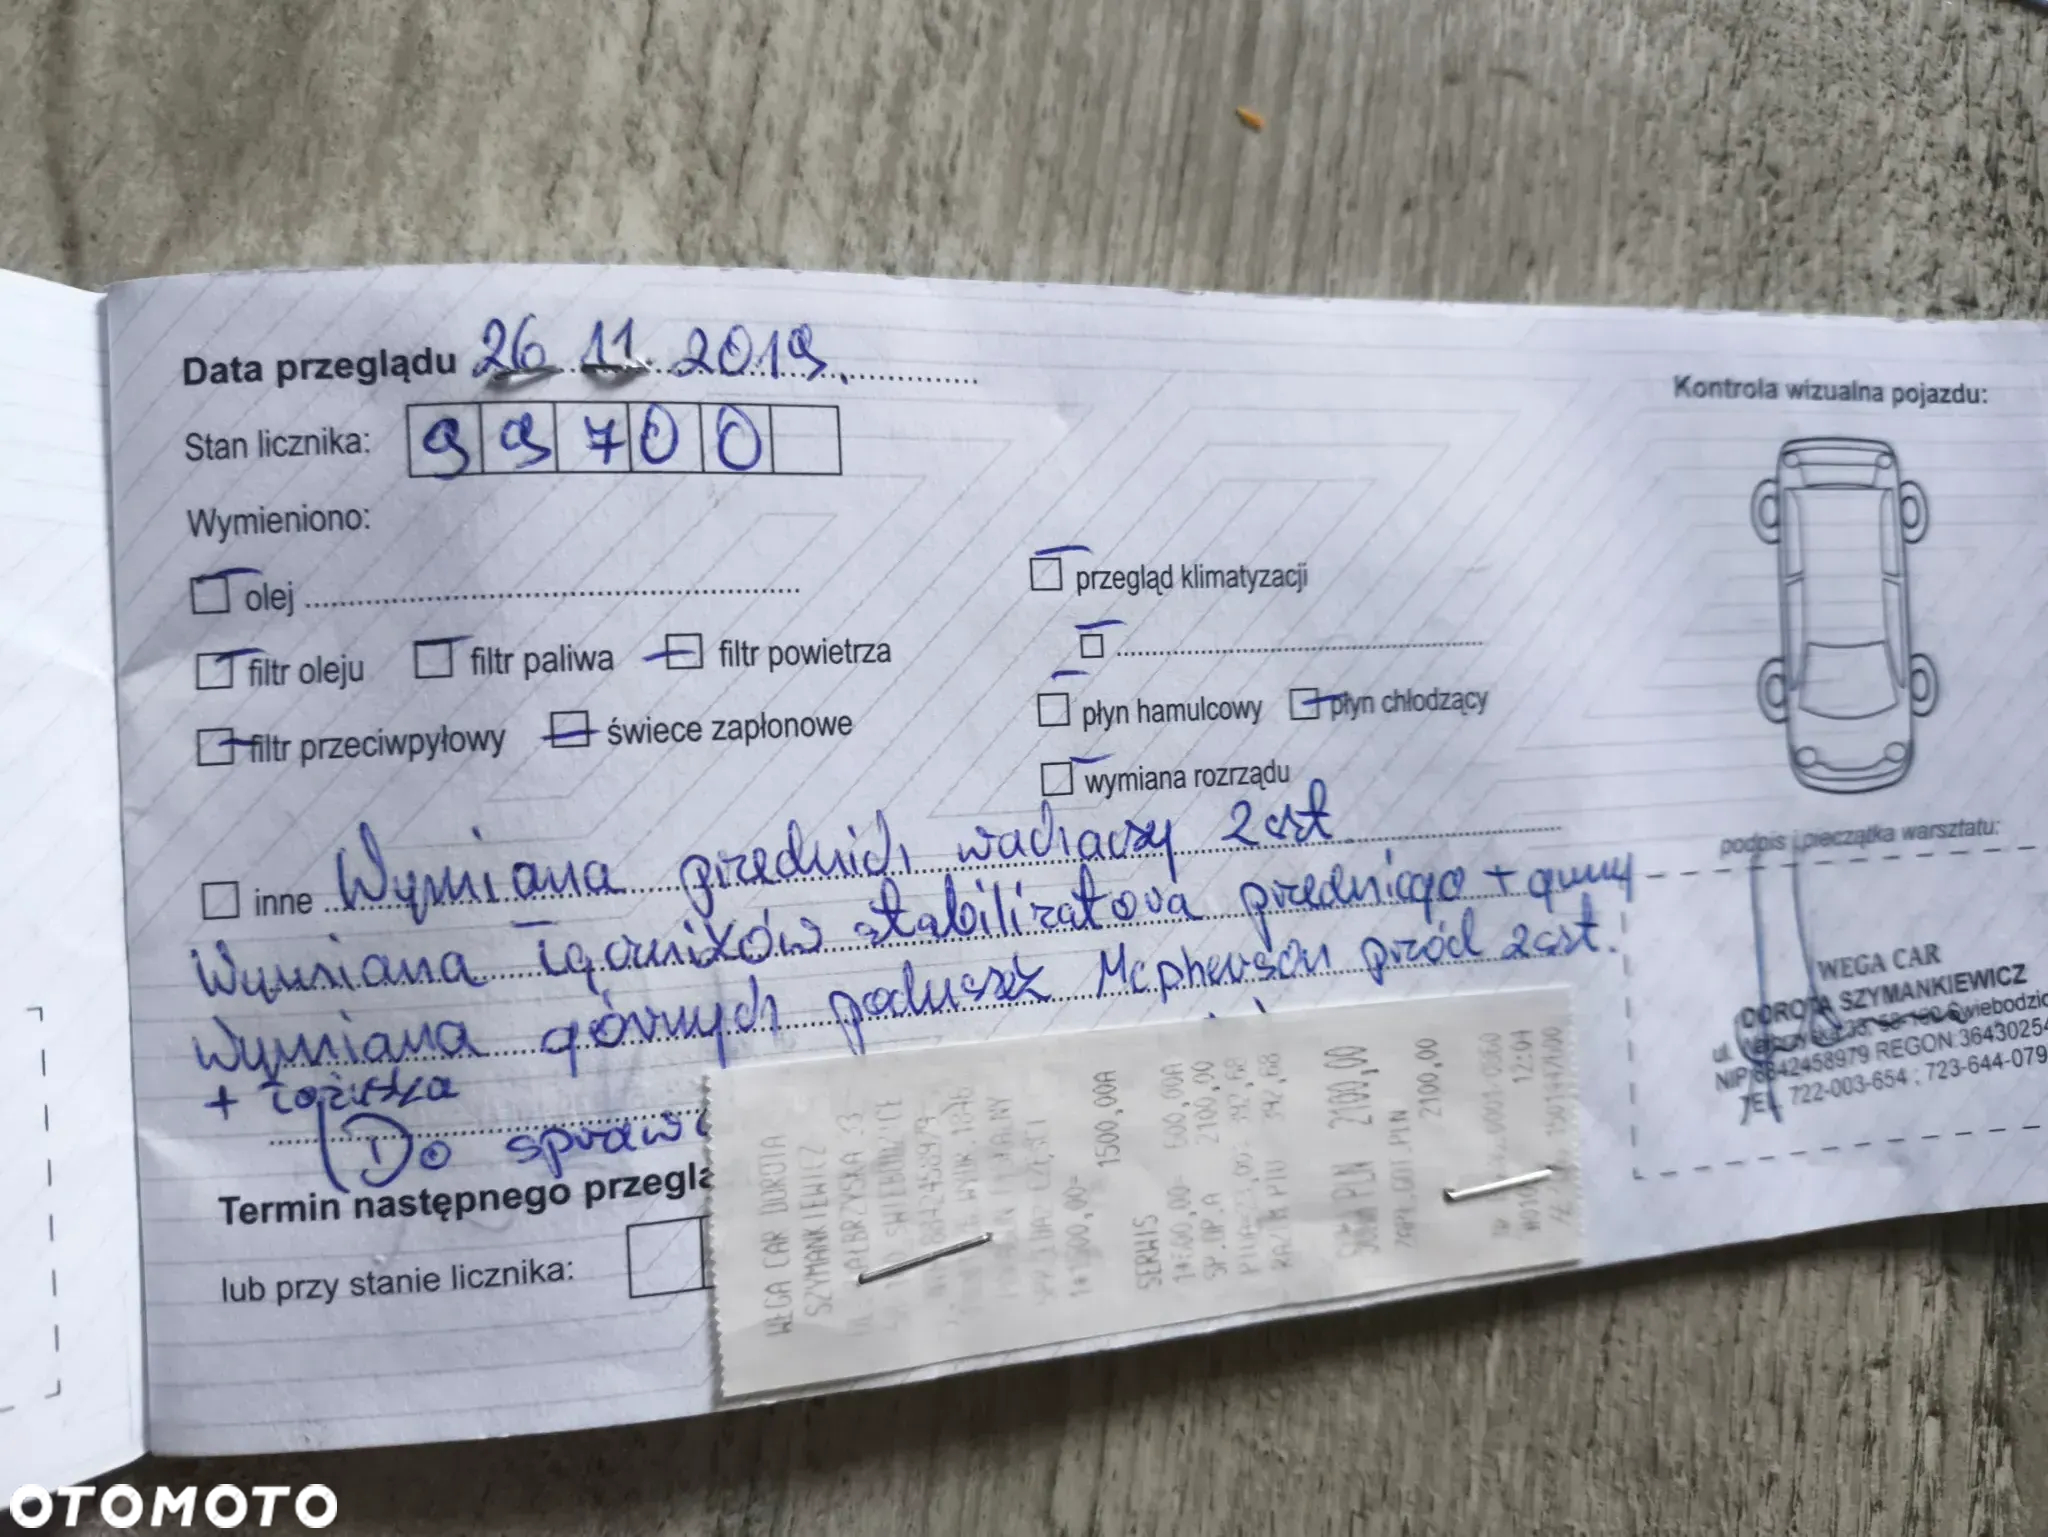 Data przeglądu 26 11. 2019.
Stan licznika: 99700
Wymieniono:
olej
filtr oleju filtr paliwa filtr powietrza
filtr przeciwpyłowy świece zapłonowe
przegląd klimatyzacji
płyn hamulcowy płyn chłodzący
wymiana rozrządu
inne Wymiana przednich wachaczy 2 szt.
Wymiana łączników stabilizatora przedniego + gumy
Wymiana górnych poduszek Mcpherson przód 2 szt.
+ łożyska
Do
Termin następnego
lub przy stanie licznika:
Kontrola wizualna pojazdu:
podpis i pieczątka warsztatu:
WEGA CAR
DOROTA SZYMANKIEWICZ
NIP 8842458979 REGON:
TEL. 722-003-654 ; 723-644-079
WEGA CAR DOROTA
SZYMANKIEWICZ
1500,00A
SERWIS
600,00A
SP.OP.A 2100,00
342,68
342,68
SUMA PLN 2100,00
2100,00
12:04
OTOMOTO